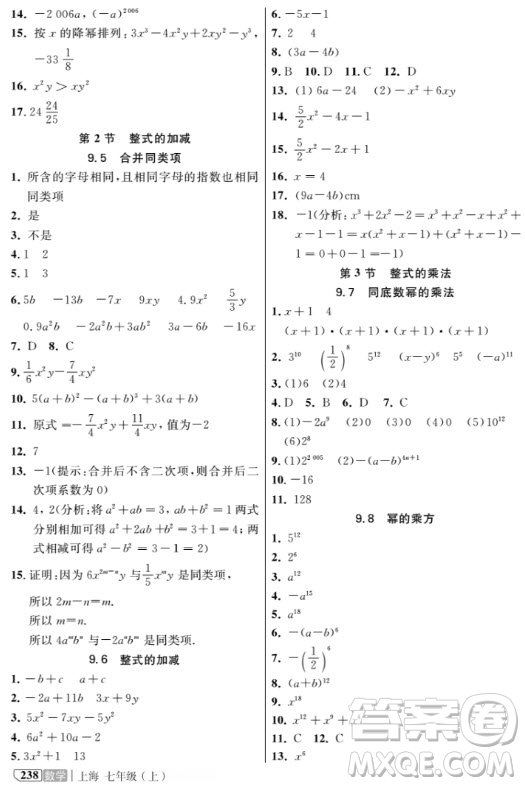 14. －2 006a，(－a)²⁰⁰⁶
15. 按 x 的降幂排列：3x³－4x²y＋2xy²－y³
－33 1/8
16. x²y＞xy²
17. 24 24/25
第 2 节 整式的加减
9.5 合并同类项
1. 所含的字母相同，且相同字母的指数也相同
同类项
2. 是
3. 不是
4. 1 2
5. 1 3
6. 5b －13b －7x 9x 4.9x² 5/3 y
0.9x² －2a²b 6a²b －4b －16x
7. D 8. C
9. 1/6 x²y－7/4 xy²
10. 5(a＋b)²－(a＋b)³＋3(a＋b)
11. 原式＝－7/4 x²y＋11/4 xy
12. 7
13. －1(提示：合并后不含二次项，则合并后二
次项系数为 0)
14. 4，2(分析：将 a²＋ab＝3，ab＋b²＝1 两式
分别相加可得 a²＋2ab＋b²＝4，相减可得
a²－b²＝2)
15. 证明：因为 6x²ᵐ⁻ⁿy 与 1/5 xᵐy 是同类项，
所以 2m－n＝m．
所以 m＝n．
所以 4aᵐbⁿ 与 aⁿbᵐ 是同类项．
9.6 整式的加减
1. －b＋c a＋c
2. －2a＋11b
3. 5x²－7xy－5y²
4. 6a²
5. 3x²＋1 13
238 数学 上海 七年级（上）
6. －5x－1
7. 2 4
8. (3a－4b)
9. B 10. D 11. C 12. D
13. (1)6a－24 (2)－x²＋6xy
14. 5/2 x²－4x－1
15. 5/2 x²－xy＋5y²
16. x＝4
17. (9a－4b)cm
18. －1(分析：x³＋2x²－2＝x³＋x²－x＋x²＋
x－1－1＝x(x²＋x－1)＋(x²＋x－1)－
1＝0＋0－1＝－1)
第 3 节 整式的乘法
9.7 同底数幂的乘法
1. x＋1 4
(x＋1)·(x＋1)·(x＋1)·(x＋1)
2. 3¹⁰ (1/2)⁸ 5¹² (x－y)⁶ 5⁵ (－a)¹¹
3. (1)6 (2)4
4. D 5. D 6. D 7. C
8. (1)a⁹ (2)0 (3)0 (4)0 (5)10¹²
(6)2⁸
9. (1)2²⁰⁰⁵ (2)－(a－b)⁴ⁿ⁺¹
10. －16
11. 128
9.8 幂的乘方
1. 5¹²
2. 2⁶
3. a¹²
4. －a¹⁵
5. a¹⁸
6. －b⁶
7. －(1/2)⁶
8. (a＋b)¹²
9. D 10. C
11. A 12. C
13. x⁶